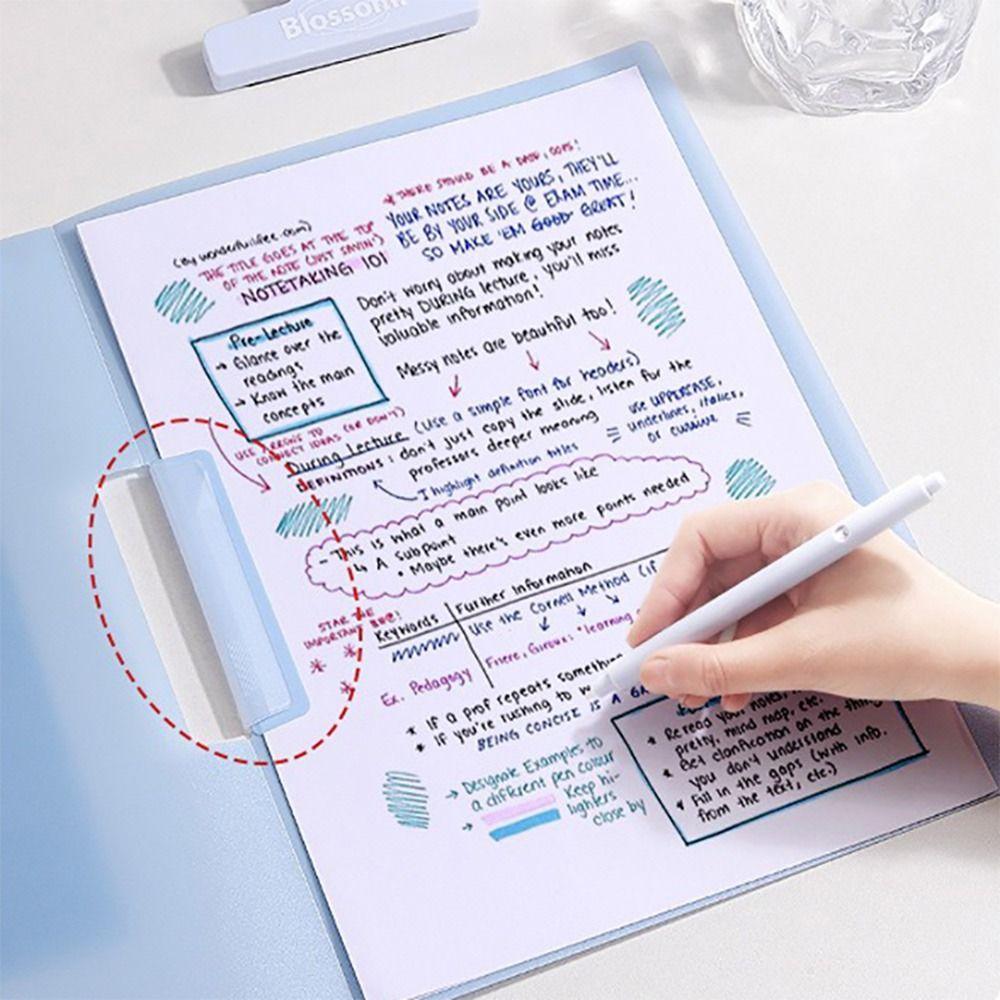 Blossom
* THERE SHOULD BE A DATE, OOPS!
YOUR NOTES ARE YOURS, THEY'LL
BE BY YOUR SIDE @ EXAM TIME...
SO MAKE 'EM GOOD GREAT!
THE TITLE GOES AT THE TOP
OF THE NOTE (JUST SAYIN')
NOTETAKING 101
Don't worry about making your notes
pretty DURING lecture, you'll miss
valuable information!
Messy notes are beautiful too!
Pre-Lecture
→ Glance over the
readings
→ Know the main
concepts
USE ARROWS TO
CONNECT IDEAS (OR DON'T)
During Lecture (use a simple font for headers)
DEFINITIONS: don't just copy the slide, listen for the
professors deeper meaning
use UPPERCASE,
underlines, italics,
or cursive
I highlight definition titles
- This is what a main point looks like
↳ A subpoint
• Maybe there's even more points needed
STAR THE
IMPORTANT
Keywords
Further Information
Use the Cornell Method (if
Ex. Pedagogy
Friere, Giroux: "learning
* If a prof repeats something
* If you're rushing to
BEING CONCISE IS A
→ Designate Examples to
a different pen colour
→ Keep hi-
lighters
close by
* Re read your notes,
pretty, mind map, etc.
* Get clarification on the
you don't understand
* Fill in the gaps (with info.
from the text, etc.)